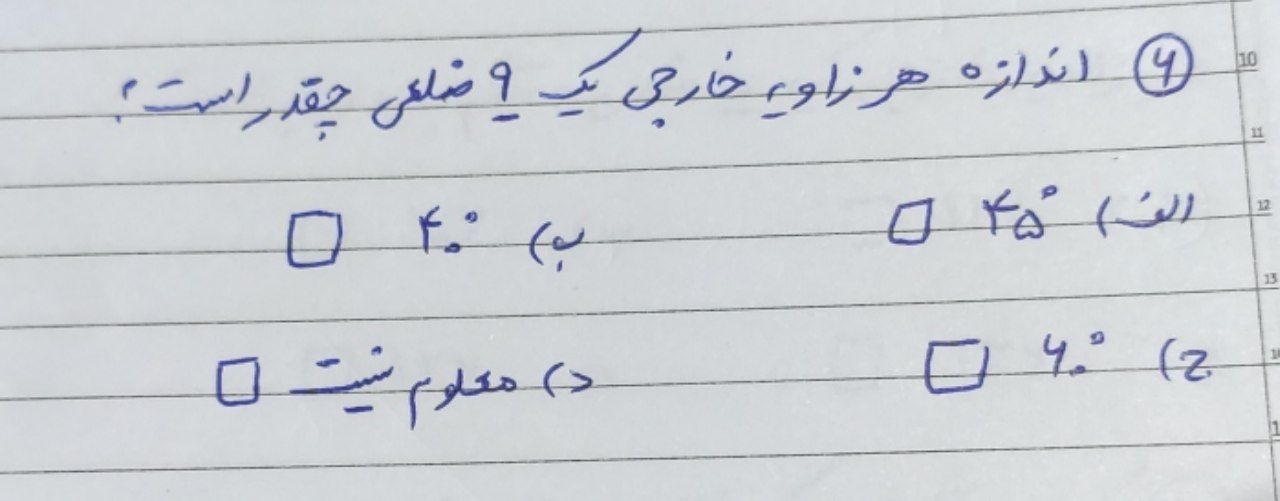 ۶ اندازه هر زاویه خارجی یک ۹ ضلعی چقدر است؟
الف) ۴۵° ب) ۴۰°
ج) ۶۰° د) معلوم نیست
10
11
12
13